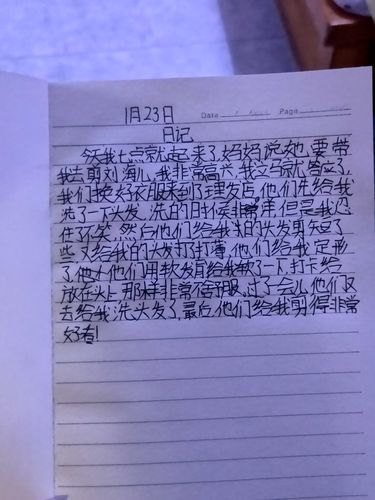 1月23日
Date Page
日记
今天我七点就起来了,妈妈说她要带
我去剪刘海儿,我非常高兴,我立马就答应了,
我们换好衣服来到了理发店,他们先给我
洗了一下头发,洗的时候非常,但是我忍
住了笑,然后他们给我的头发剪短了
些又给我的头发打了打薄,他们给我定形
了,他们用软发膏给我软了一下,打卡给
放在头上那样非常不舒服,过了会儿他们又
去给我洗头发了,最后他们给我剪得非常
好看!